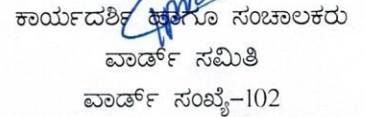 ಕಾರ್ಯದರ್ಶಿ ಹಾಗೂ ಸಂಚಾಲಕರು
ವಾರ್ಡ್ ಸಮಿತಿ
ವಾರ್ಡ್ ಸಂಖ್ಯೆ-102